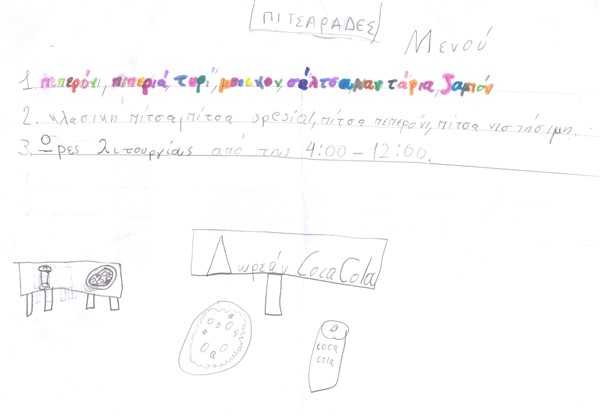 ΠΙΤΣΑΡΑΔΕΣ
Μενού
1. πεπερόνι, πιπεριά, τυρί, μπεικον, σάλτσα, μανιτάρια, ζαμπόν
2. κλασική πίτσα, πίτσα spesial, πίτσα πεπερόνι, πίτσα νιστήσιμη.
3. Ορες λιτουργίας από της 4:00 - 12:00.
Δωρεάν Coca Cola
coca
cola